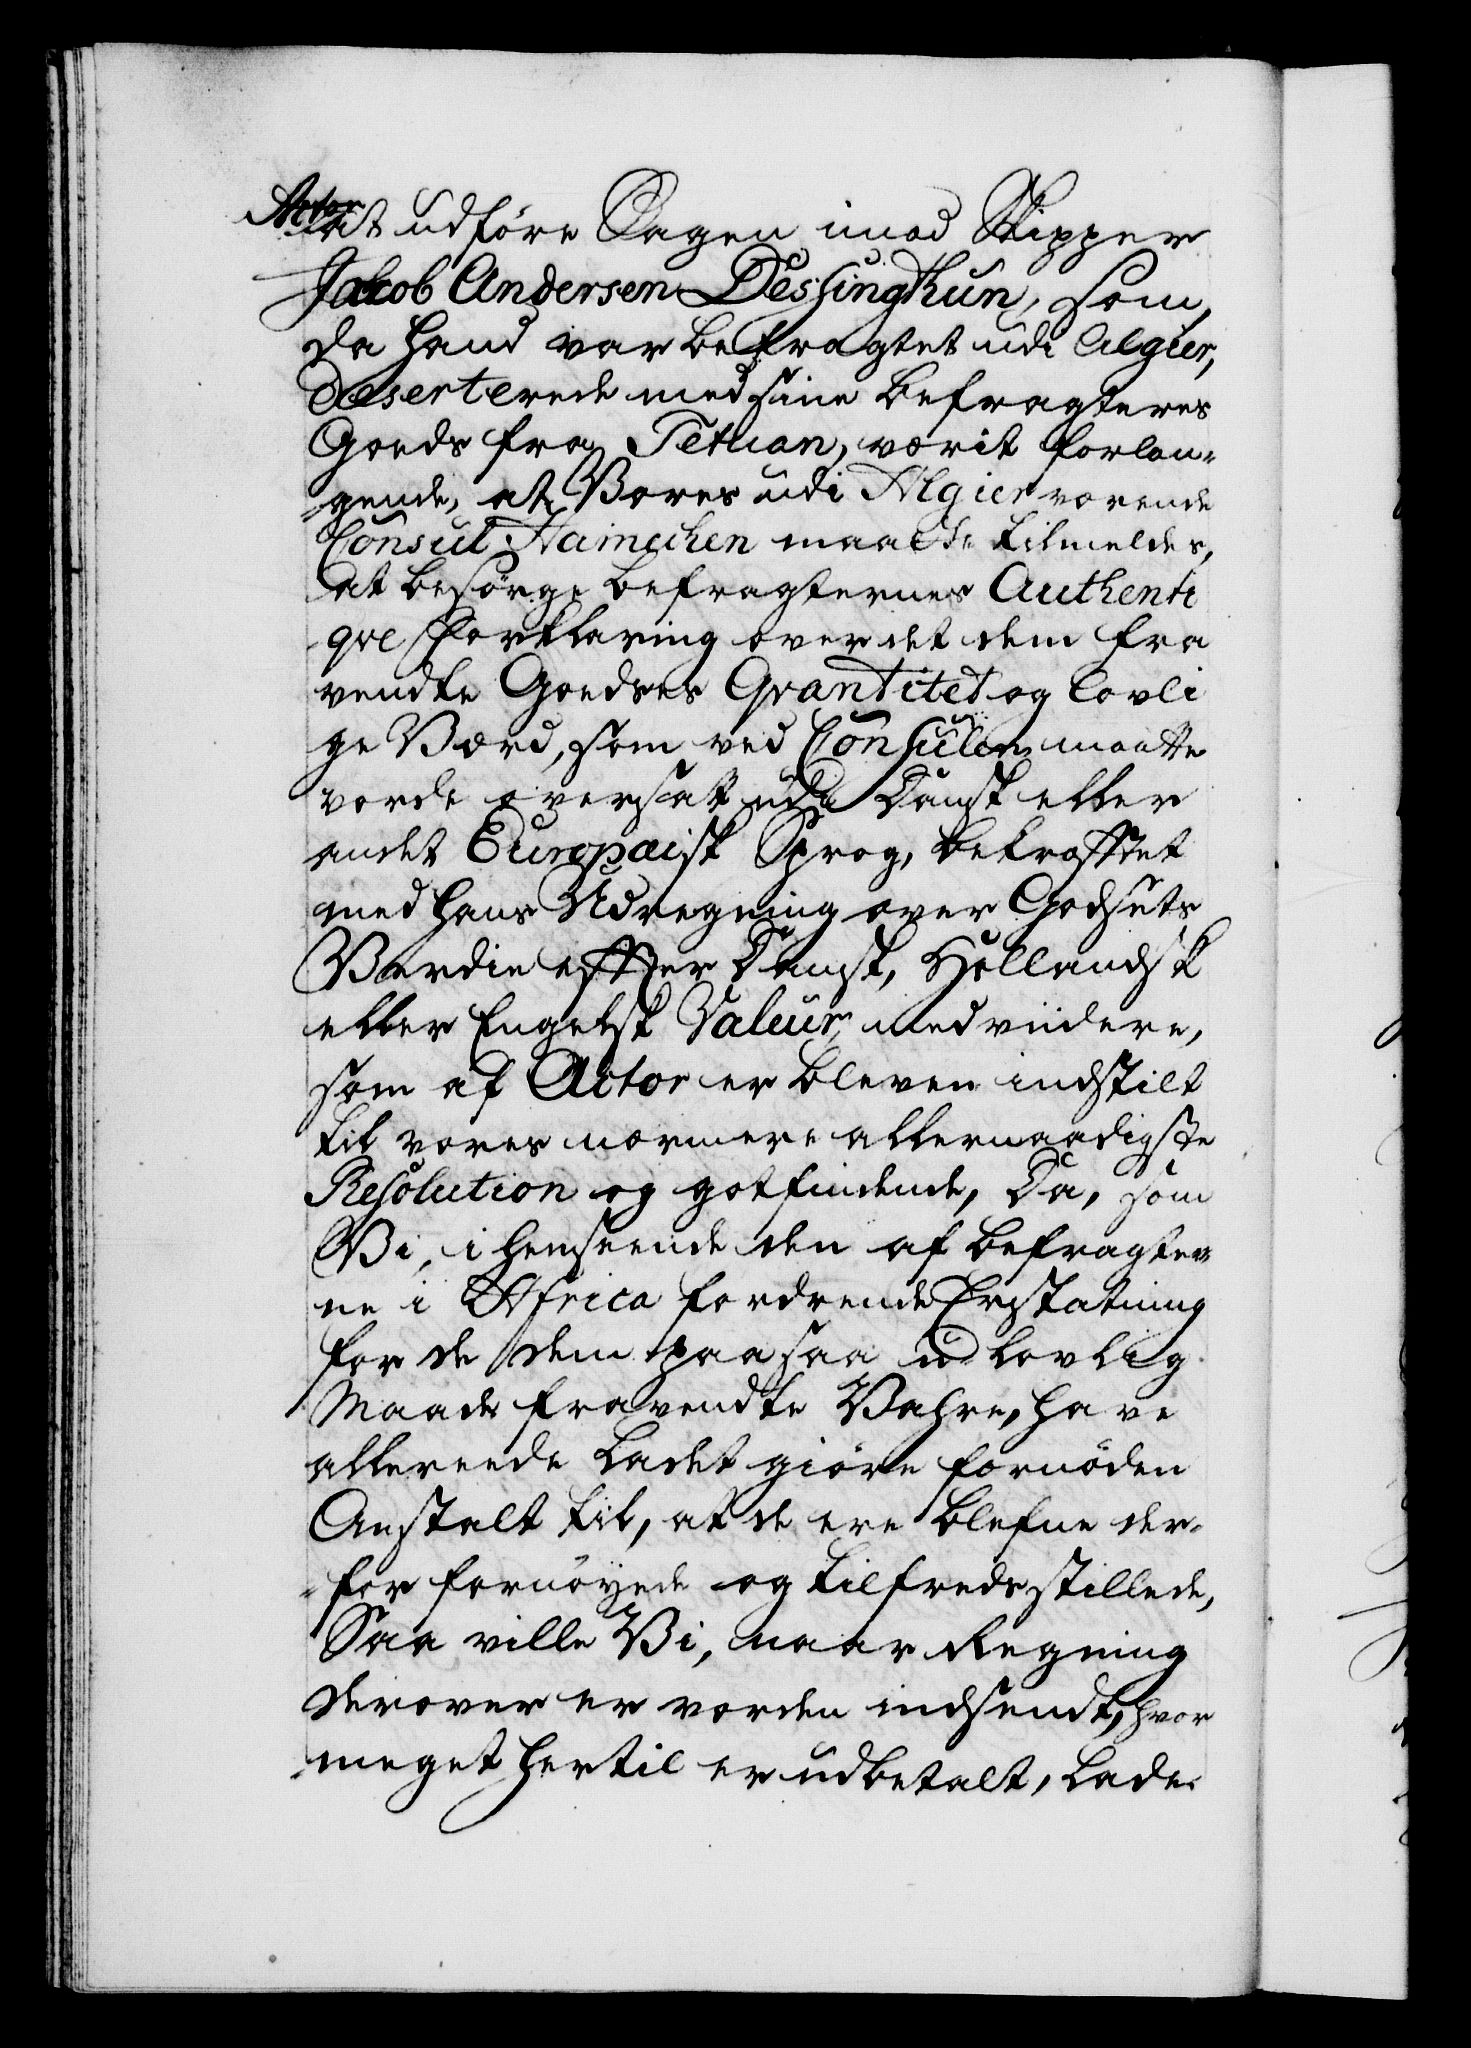 Actor
at udföre Sagen imod Skipper
Jacob Andersen Dessingthun, som,
da hand var befragtet udi Algier,
deserterede med sine Befragteres
Goeds fra Tetuan, værit forlan-
gende, at Vores udi Algier værende
Consul Hameken maatte tilmeldes,
at besörge befragternes Authenti
qve Forklaring over det dem fra
vendte Goedses Qvantitet og lovli
ge Værd, som ved Consulen maatte
vorde oversatt udi Dansk eller
andet Europæisk Sprog, bekræfftet
med hans Udregning over Godsets
Værdie effter Dansk, Hollandsk
eller Engelsk Valeur, med viidere,
som af Actor er bleven indstilt
til vores nærmere allernaadigste
Resolution og gotfindende, Da, som
Vi, i henseende den af befragter
ne i Africa fordrende Erstatning
for de dem paa saa u-lovlig
Maade fravendte Vahre, have
allereede ladet giöre fornöden
Anstalt til, at de ere blefne der-
for fornöyede og tilfredsstillede,
Saa ville Vi, naar Regning
derover er vorden indsendt, hvor
meget hertil er udbetalt, lade